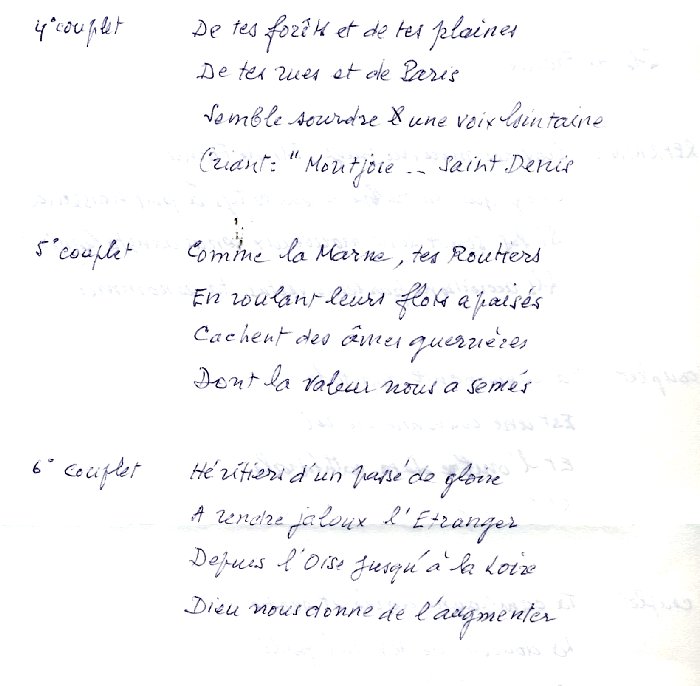 4° couplet De tes forêts et de tes plaines
De tes rues et de Paris
Semble sourdre une voix lointaine
Criant: "Montjoie -- Saint Denis
5° couplet Comme la Marne, tes Routiers
En roulant leurs flots apaisés
Cachent des âmes guerrières
Dont la valeur nous a semés
6° couplet Héritiers d'un passé de gloire
A rendre jaloux l'Etranger
Depuis l'Oise jusqu'à la Loire
Dieu nous donne de l'augmenter